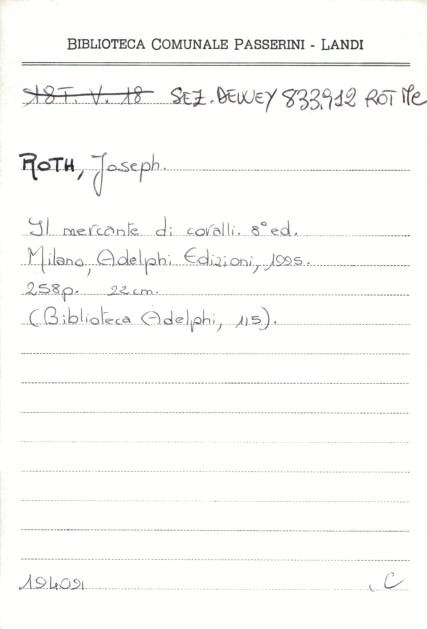 BIBLIOTECA COMUNALE PASSERINI - LANDI
18T. V. 18 SEZ. DEWEY 833.912 ROT Me
ROTH, Joseph.
Il mercante di coralli. 8° ed.
Milano, Adelphi Edizioni, 1995.
258p. 22cm.
(Biblioteca Adelphi, 115).
194091 C